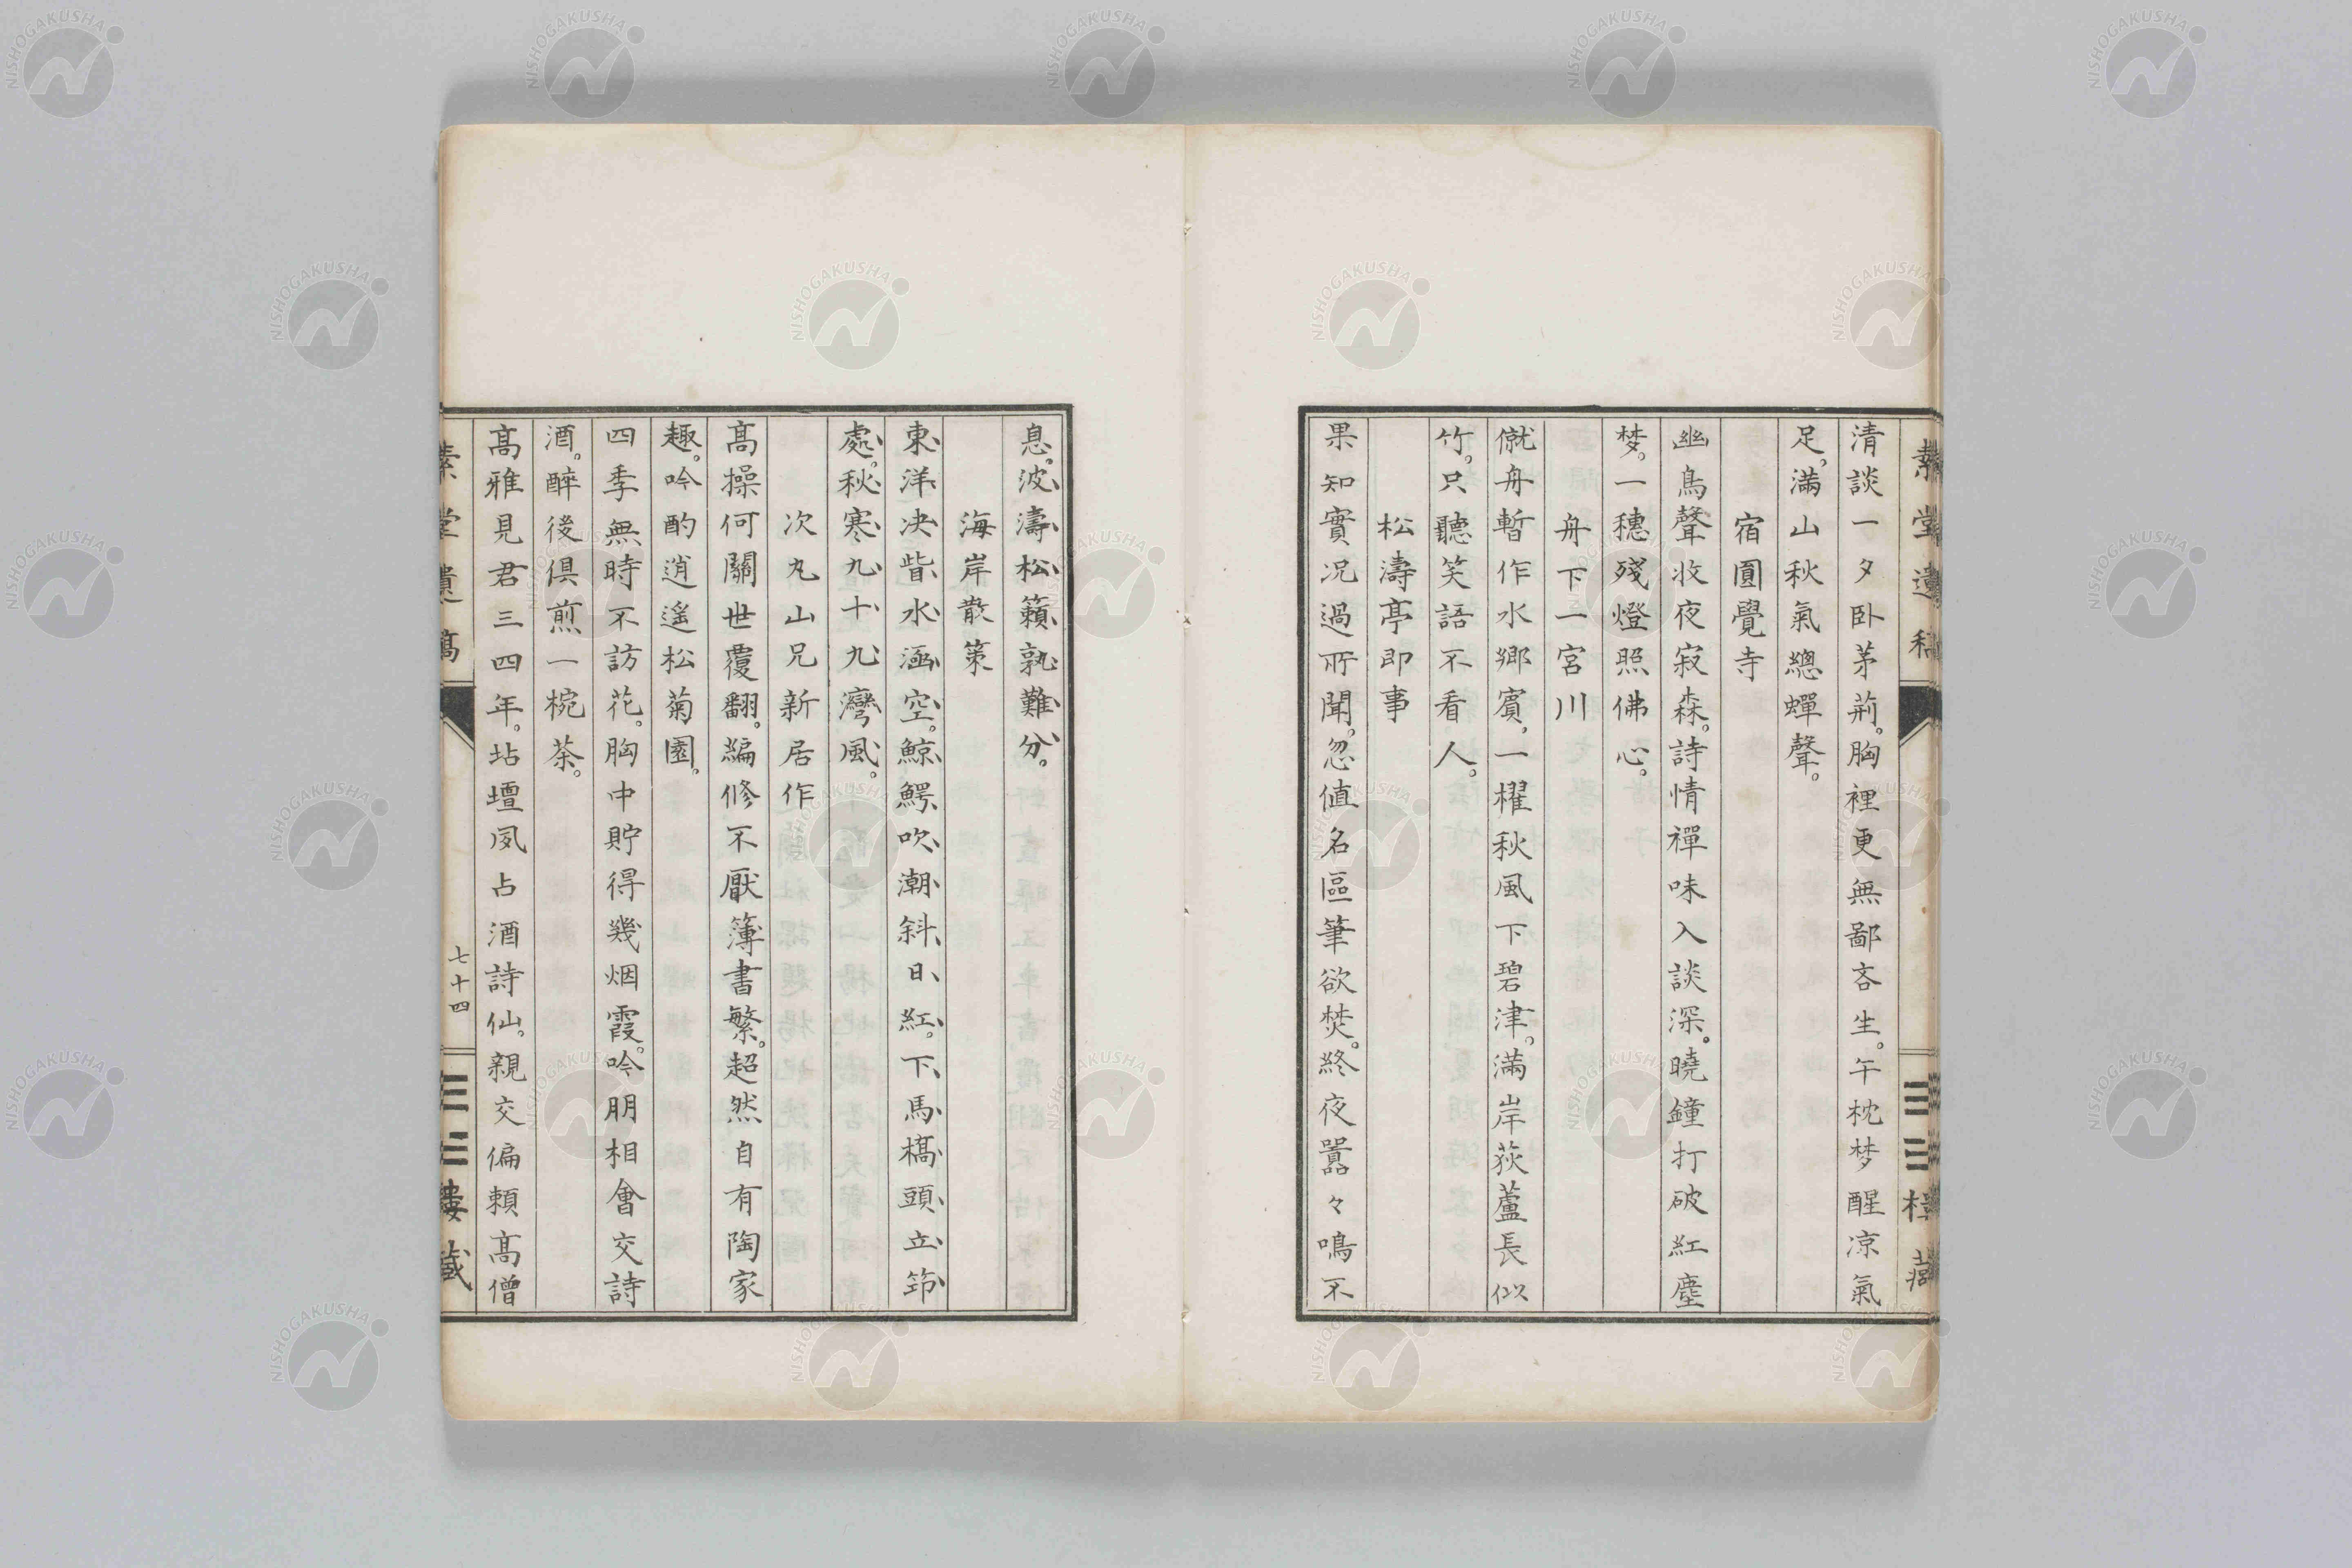 素堂遺稿
清談一夕臥茅荊。胸裡更無鄙吝生。午枕梦醒凉氣
足。滿山秋氣總蟬聲。
宿圓覺寺
幽鳥聲收夜寂森。詩情禪味入談深。曉鐘打破紅塵
梦。一穗殘燈照佛心。
舟下一宮川
僦舟暫作水鄉賓。一櫂秋風下碧津。滿岸荻蘆長似
竹。只聽笑語不看人。
松濤亭即事
果知實況過所聞。忽值名區筆欲焚。終夜囂々鳴不
息。波濤松籟孰難分。
海岸散策
東洋決眥水涵空。鯨鰐吹潮斜日紅。下馬橋頭立筇
處。秋寒九十九灣風。
次丸山兄新居作
高操何關世覆翻。編修不厭簿書繁。超然自有陶家
趣。吟酌逍遙松菊園。
四季無時不訪花。胸中貯得幾烟霞。吟朋相會交詩
酒。醉後俱煎一椀茶。
高雅見君三四年。坫壇夙占酒詩仙。親交偏賴高僧
素堂遺稿
七十四
三三樓藏
NISHOGAKUSHA